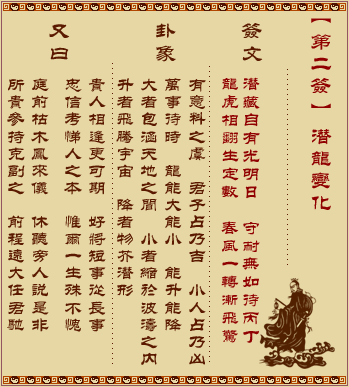 【第二簽】 潛龍變化
簽文
潛藏自有光明日 守耐無如待丙丁
龍虎相翻生定數 春風一轉漸飛驚
卦象
有意料之虞 君子占乃吉 小人占乃凶
萬事待時 龍能大能小 能升能降
大者包涵天地之間 小者縮於波濤之內
升者飛騰宇宙 降者物芥潛形
又曰
貴人相逢更可期 好將短事從長事
忠信考悌人之本 惟爾一生殊不愧
庭前枯木鳳來儀 休聽旁人說是非
所貴參持克副之 前程遠大任君馳